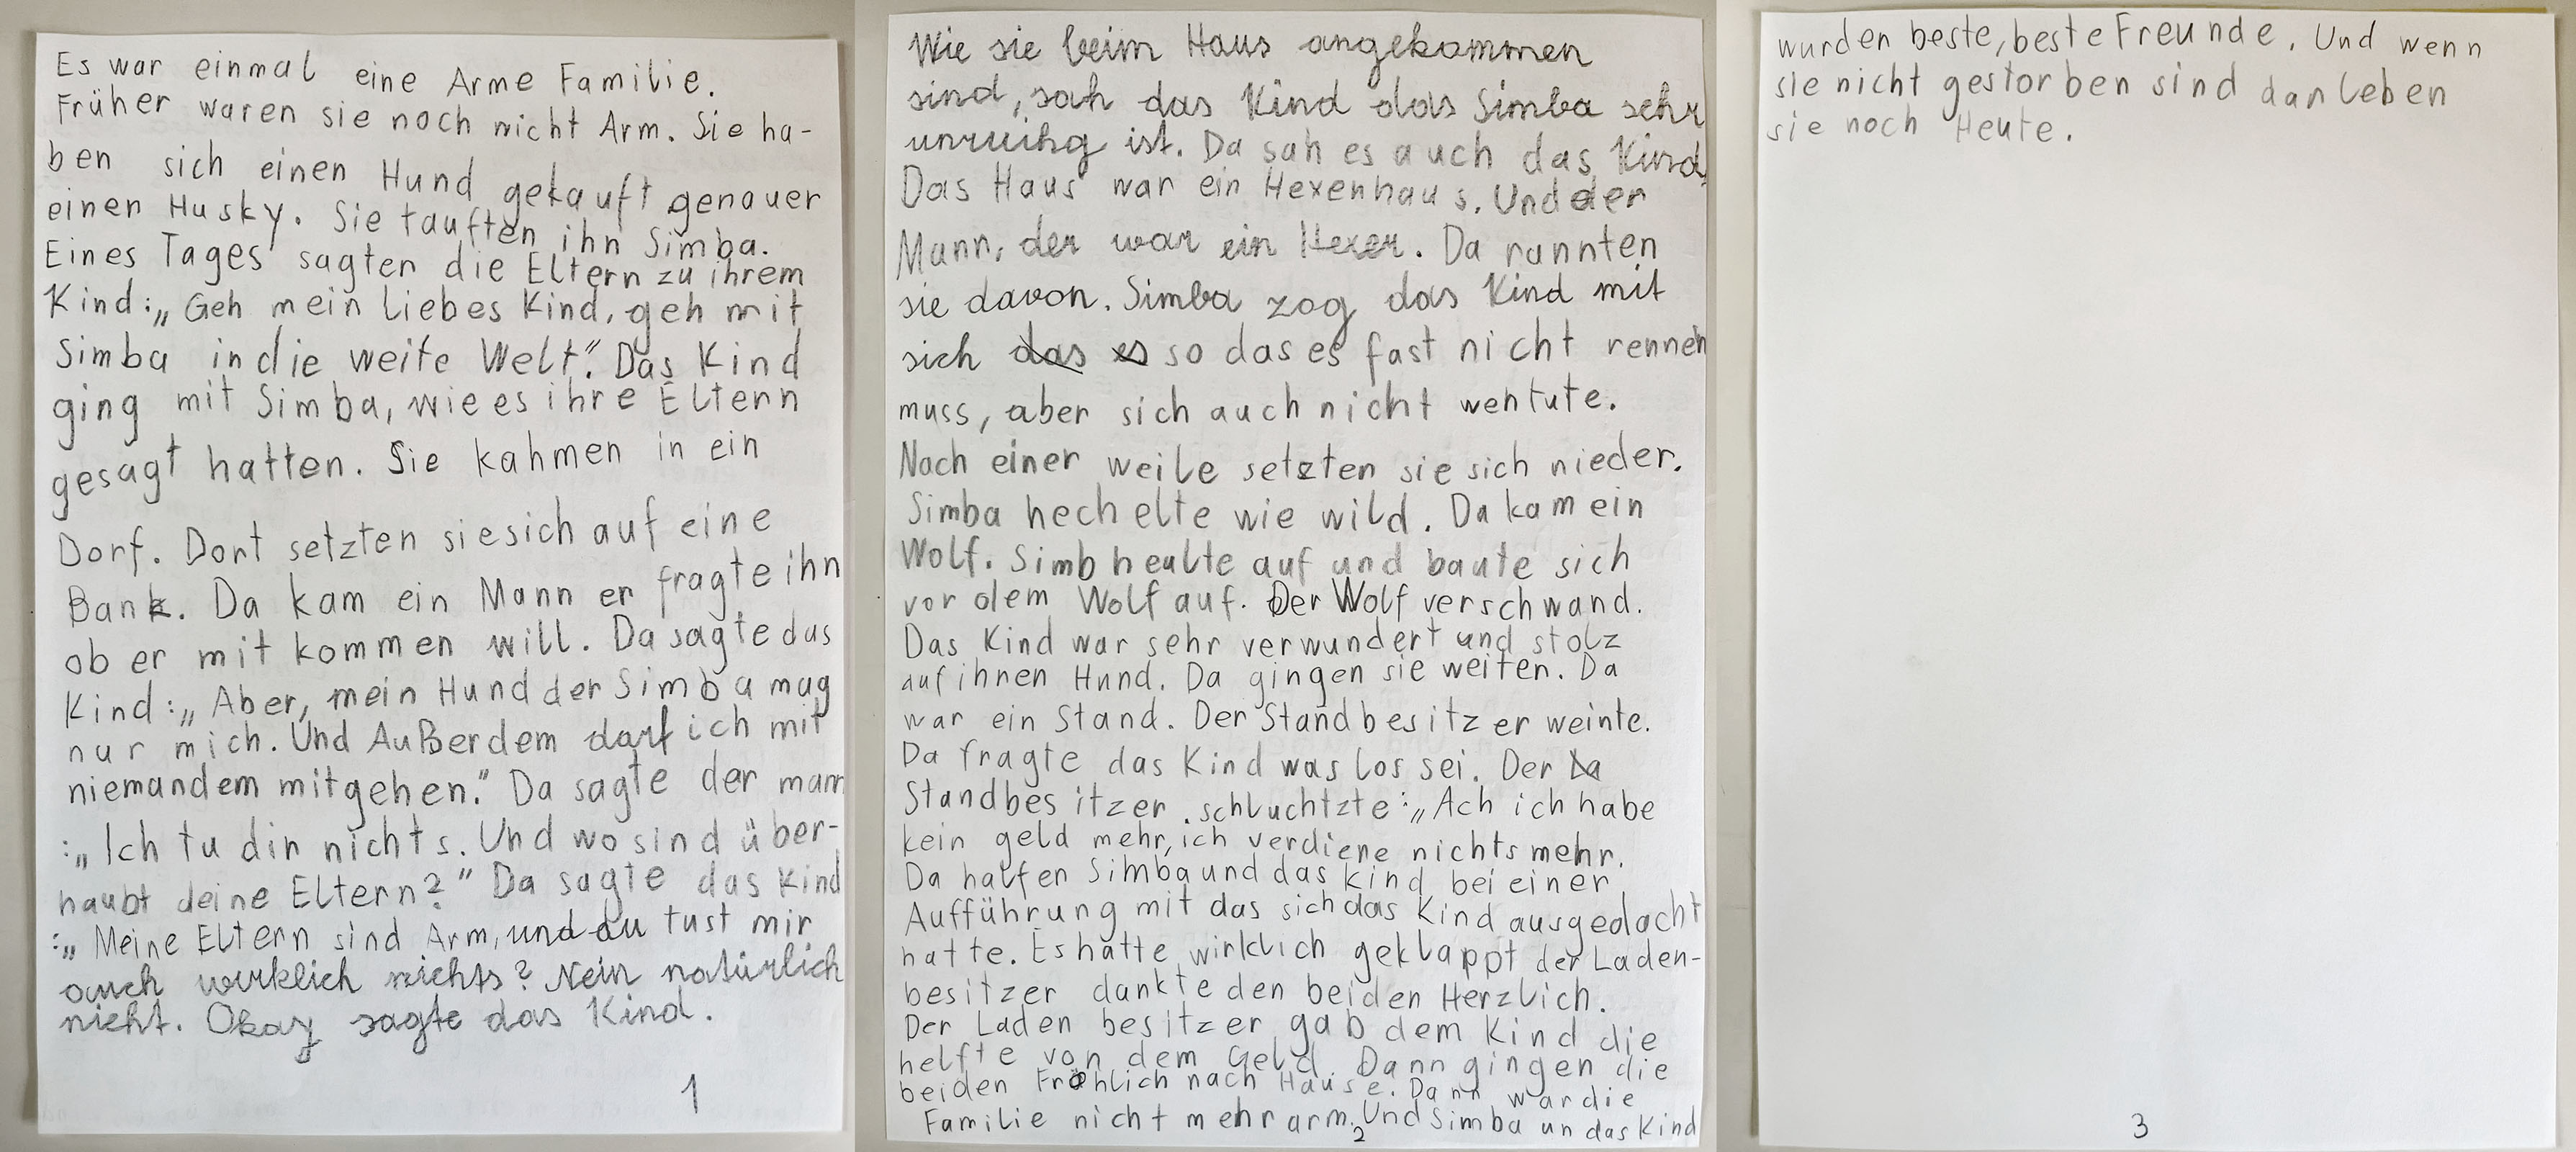 Es war einmal eine Arme Familie.
Früher waren sie noch nicht Arm. Sie ha-
ben sich einen Hund gekauft genauer
einen Husky. Sie tauften ihn Simba.
Eines Tages sagten die Eltern zu ihrem
Kind:„Geh mein liebes Kind, geh mit
Simba in die weite Welt". Das Kind
ging mit Simba, wie es ihre Eltern
gesagt hatten. Sie kahmen in ein
Dorf. Dort setzten sie sich auf eine
Bank. Da kam ein Mann er fragte ihn
ob er mit kommen will. Da sagte das
Kind:„Aber, mein Hund der Simba mag
nur mich. Und Außerdem darf ich mit
niemandem mitgehen." Da sagte der mann
:„Ich tu dir nichts. Und wo sind über-
haubt deine Eltern?" Da sagte das Kind
:„Meine Eltern sind Arm, und du tust mir
auch wirklich nichts? Nein natürlich
nicht. Okay sagte das Kind.
1
Wie sie beim Haus angekommen
sind, sah das Kind das Simba sehr
unruihg ist. Da sah es auch das Kind,
Das Haus war ein Hexenhaus. Und der
Mann, der war ein Hexer. Da rannten
sie davon. Simba zog das Kind mit
sich das es so das es fast nicht rennen
muss, aber sich auch nicht wehtute.
Nach einer weile setzten sie sich nieder.
Simba hechelte wie wild. Da kam ein
Wolf. Simb heulte auf und baute sich
vor dem Wolf auf. Der Wolf verschwand.
Das Kind war sehr verwundert und stolz
auf ihnen Hund. Da gingen sie weiter. Da
war ein Stand. Der Standbesitzer weinte.
Da fragte das Kind was los sei. Der La
Standbesitzer schluchtzte:„Ach ich habe
kein geld mehr, ich verdiene nichts mehr.
Da halfen Simba und das Kind bei einer
Aufführung mit das sich das Kind ausgedacht
hatte. Es hatte wirklich geklappt der Laden-
besitzer dankte den beiden Herzlich.
Der Laden besitzer gab dem Kind die
helfte von dem Geld. Dann gingen die
beiden Fröhlich nach Hause. Dann war die
Familie nicht mehr arm. Und Simba un das Kind
2
wurden beste, beste Freunde. Und wenn
sie nicht gestorben sind dan leben
sie noch Heute.
3